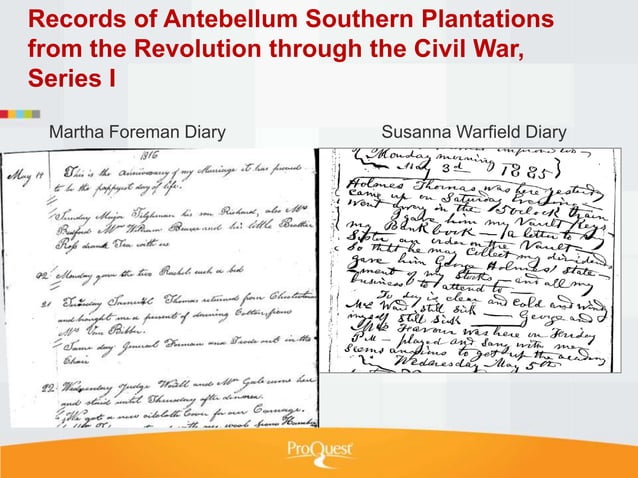 Records of Antebellum Southern Plantations
from the Revolution through the Civil War,
Series I
Martha Foreman Diary
Susanna Warfield Diary
1816
May 19 This is the Anniversary of my Marriage it has proved
to be the happyest day of life.
Sunday Major Tilghman his son Richard, also Mrs
Bedford Mrs William Bowers and his little Brother
Ross drank Tea with us
Monday gave the two Rachels each a bed
21 Tuesday Thomas returned from Chestertown
and bought me a present of from
Mrs Van Bibber.
Same day General Foreman and Jacob out in the
Chair
22 Wednesday Judge Worell and Mrs Gale came here
and staid until Thursday after dinner.
We got a new oilcloth Cover for our Carriage.
Monday morning
May 3rd 1885
Holmes Thomas was here yesterday
Came up on Saturday evening
Went away in the 5 o'clock train
I gave him my Vault Keys
my Bank book — a letter to
Sister an order on the Vault
So that he may Collect my dividends
gave him George Holmes' state
ment of my stocks — and all my
business to attend to
To day is clear and Cold and wind
Mrs Ward Still Sick — George and
myself Still Sick
was here on Friday
P.M — played and Sang with me
Seems anxious to get up the
Wednesday May 5th
ProQuest